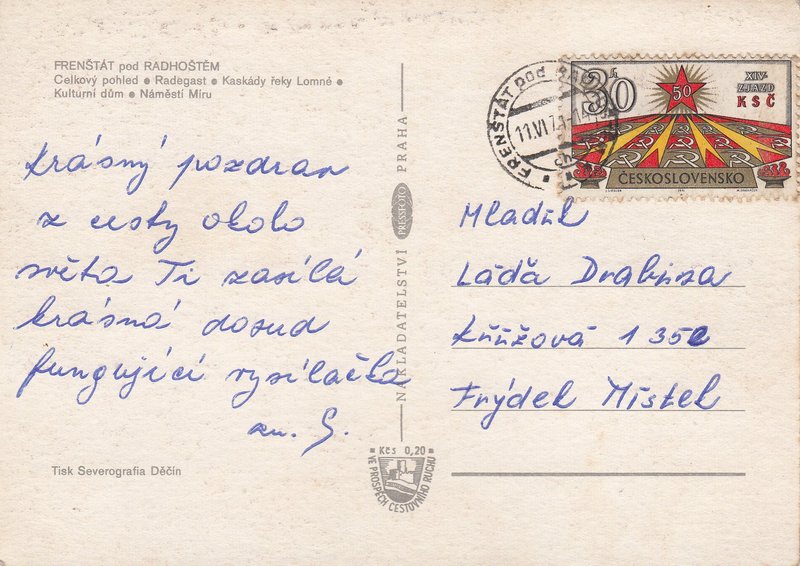 FRENŠTÁT pod RADHOŠTĚM
Celkový pohled ● Radegast ● Kaskády řeky Lomné ●
Kulturní dům ● Náměstí Míru
Krásný pozdrav
z cesty okolo
světa Ti zasílá
krásná dosud
fungující vysílačka
zn. G.
Tisk Severografia Děčín
NAKLADATELSTVÍ PRESSFOTO PRAHA
Kčs 0,20
VE PROSPĚCH CESTOVNÍHO RUCHU
FRENŠTÁT pod
11.VI.7
30
50
XIV.
ZJAZD
KSČ
ČESKOSLOVENSKO
Mladík
Láďa Drabina
Křížová 1350
Frýdek Místek